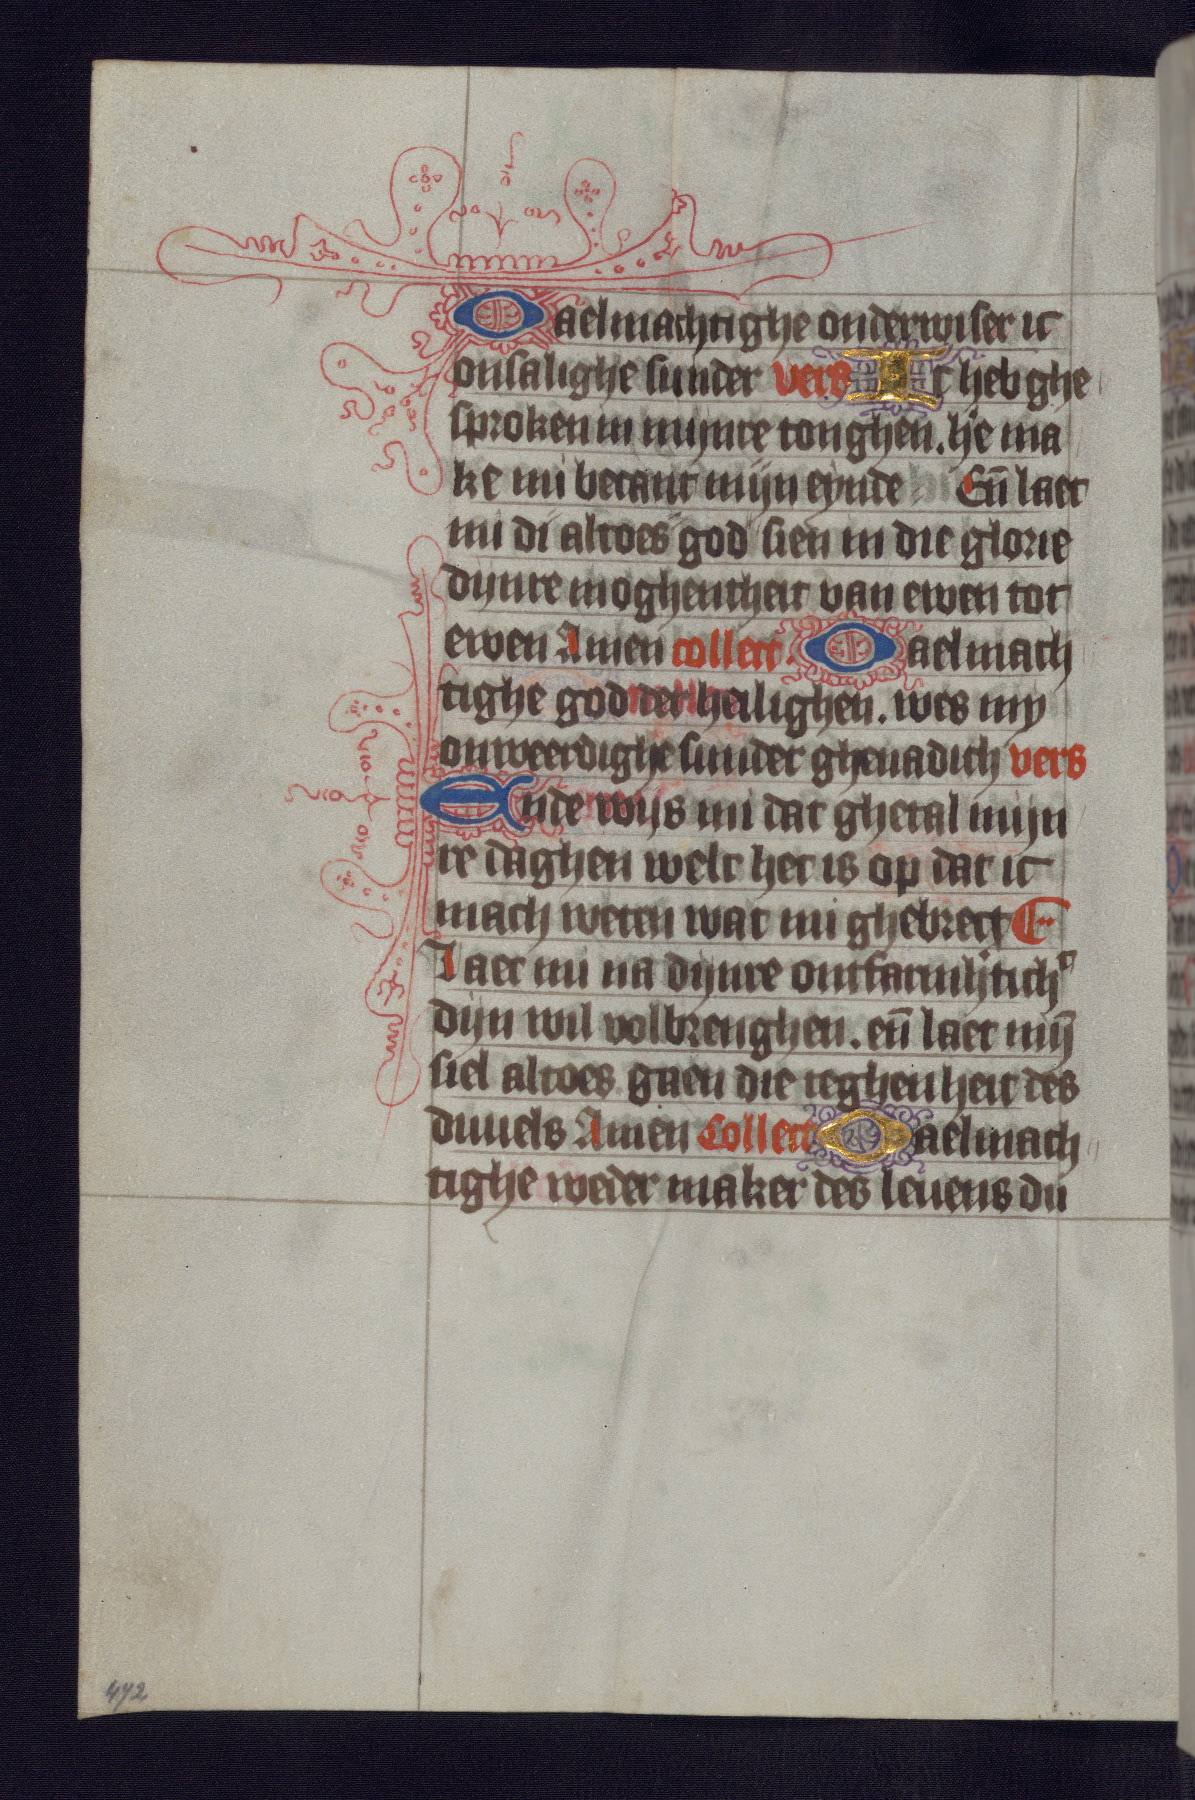 O aelmachtighe onderwiser ic
onsalighe sunder vers Ic heb ghe
sproken in mijnre tonghen. he ma
ke mi becant mijn eynde Eñ laet
mi di altoes god sien in die glorie
dijnre moghentheit van ewen tot
ewen Amen collect. O aelmach
tighe god der heilighen. wes my
onweerdighe sunder ghenadich vers
Ende wijs mi dat ghetal mijn
re daghen welc het is op dat ic
mach weten wat mi ghebrect
Laet mi na dijnre ontfarmh'tich
dijn wil volbrenghen. eñ laet mijn̄
siel altoes gaen die teghenheit des
duuels Amen Collect O aelmach
tighe weder maker des leuens du
472